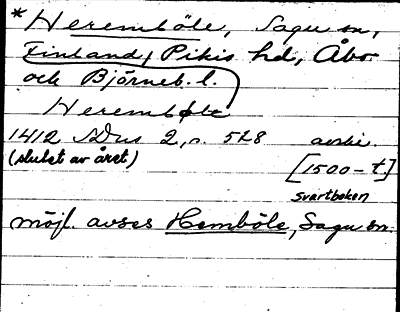 * Heremböle, Sagu sn,
Finland, Pikis hd, Åbo
och Björneb. l.
Heremböle
1412 SDns 2, s. 528 avskr.
(slutet av året) [1500-t.]
svartboken
möjl. avses Hemböle, Sagu sn.